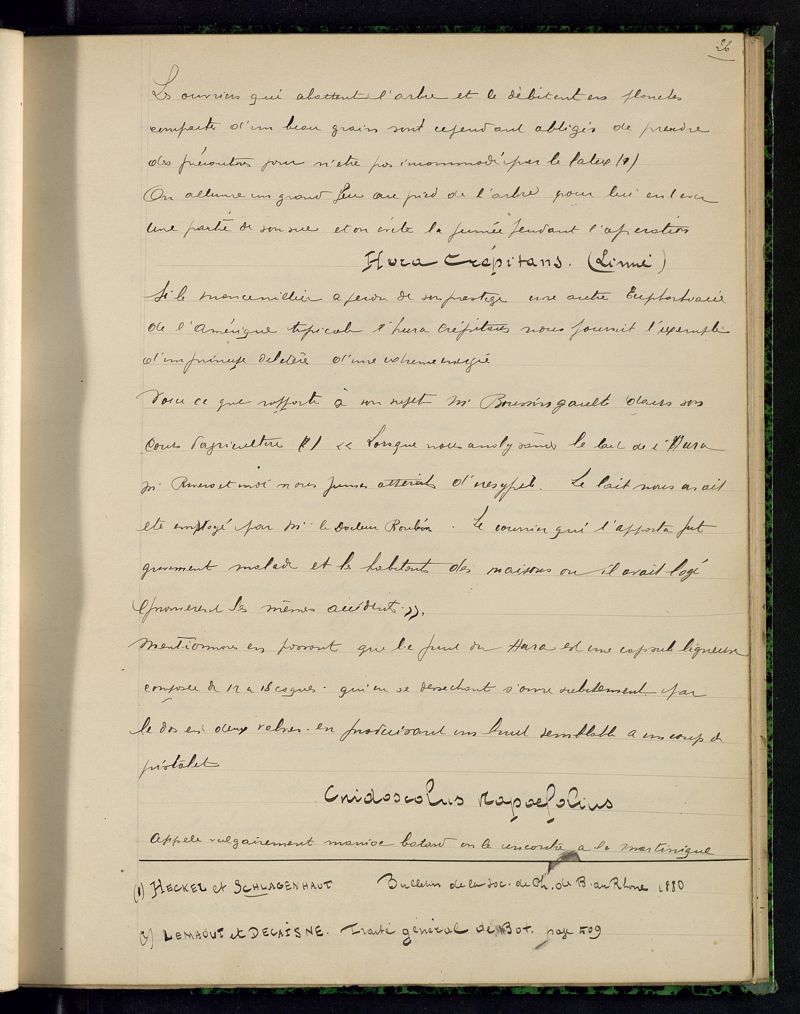 26
Les ouvriers qui abattent l'arbre et le débitent en planches
compactes d'un beau grain sont cependant obligés de prendre
des précautions pour n'etre pas incommodé par le latex (1)
On allume un grand feu au pied de l'arbre pour lui enlever
une partie de son suc et on évite la fumée pendant l'opération
Hura Crépitans. (Linné)
Si le mancenillier a perdu de son prestige une autre Euphorbiacée
de l'Amérique tropicale l'hura crépitans nous fournit l'exemple
d'un principe deletère d'une extreme energie
Voici ce que rapporte à son sujet Mr Boussingault dans son
Cours d'agriculture (2) << Lorsque nous analysâmes le lait de l'Hura
Mr Rivero et moi nous fumes atteints d'eresypele. Le lait nous avait
ete employé par Mr le Docteur Roulin. Le courrier qui l'apporta fut
gravement malade et les habitants des maisons ou il avait logé
éprouverent les mêmes accidents >>.
Mentionnons en passant que le fruit du Hura est une capsule ligneuse
composee de 12 a 18 coques. qui en se dessechant s'ouvre subitement par
le dos en deux valves. en produisant un bruit semblable a un coup de
pistolet
Cnidoscolus napoefolius
Appele vulgairement manioc batard on le rencontre a la martinique
(1) HECKEL et SCHLAGENHAUT Bulletin de la Soc. de Ph. de B. du Rhone 1880
(2) LEMAOUT et DECAISNE. Traité général de Bot. page 509